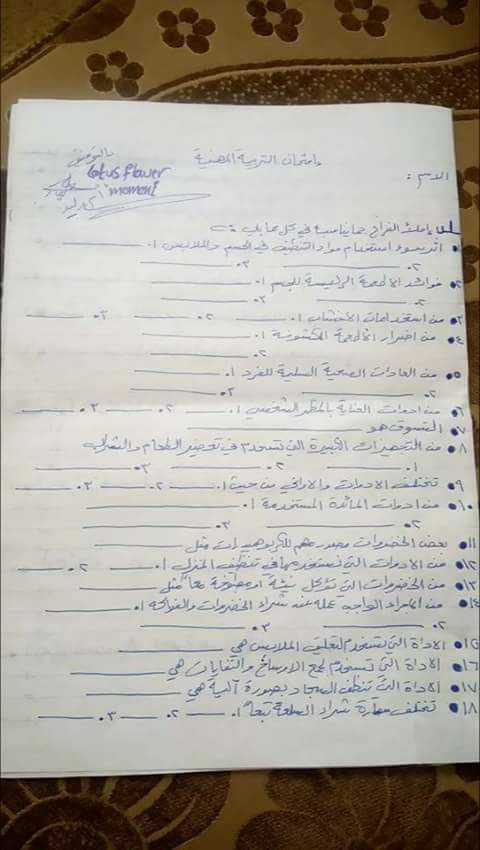 امتحان التربية المهنية
بالتوفيق
الاسم :
Lotus flower
moment
املئ الفراغ بما يناسبه في كل مما يلي :-
اثر سوء استخدام مواد التنظيف في الجسم والملابس ١.
٢. ٣.
٢ فوائد الأطعمة الرئيسة للجسم ١.
٢. ٣.
٣ من استخدامات الأخشاب ١. ٢. ٣.
٤ من اضرار الأطعمة المكشوفة ١.
٢.
٥ من العادات الصحية السليمة للفرد ١.
٢. ٣.
٦ من ادوات العناية بالمظهر الشخصي ١. ٢. ٣.
٧ التسوق هو
٨ من التجهيزات الكبيرة التي تستخدم في تحضير الطعام والشراب
١. ٢. ٣.
٩ تختلف الادوات والاواني من حيث ١. ٢. ٣.
١٠ من ادوات المائدة المستخدمة ١.
٢. ٣.
١١ بعض الخضروات مصدر مهم للكربوهيدرات مثل
١٢ من الادوات التي نستخدمها في تنظيف المنزل ١. ٢.
١٣ من الخضروات التي تؤكل نيئة او مطبوخة معاً مثل
١٤ من الامور الواجب عمله عند شراء الخضروات والفواكه ١.
٢. ٣.
١٥ الاداة التي تستخدم لتعليق الملابس هي
١٦ الاداة التي تستخدم لجمع الاوساخ والنفايات هي
١٧ الاداة التي تنظف السجاد بصورة آلية هي
١٨ تختلف مهارة شراء السلعة تبعاً ١. ٢. ٣.